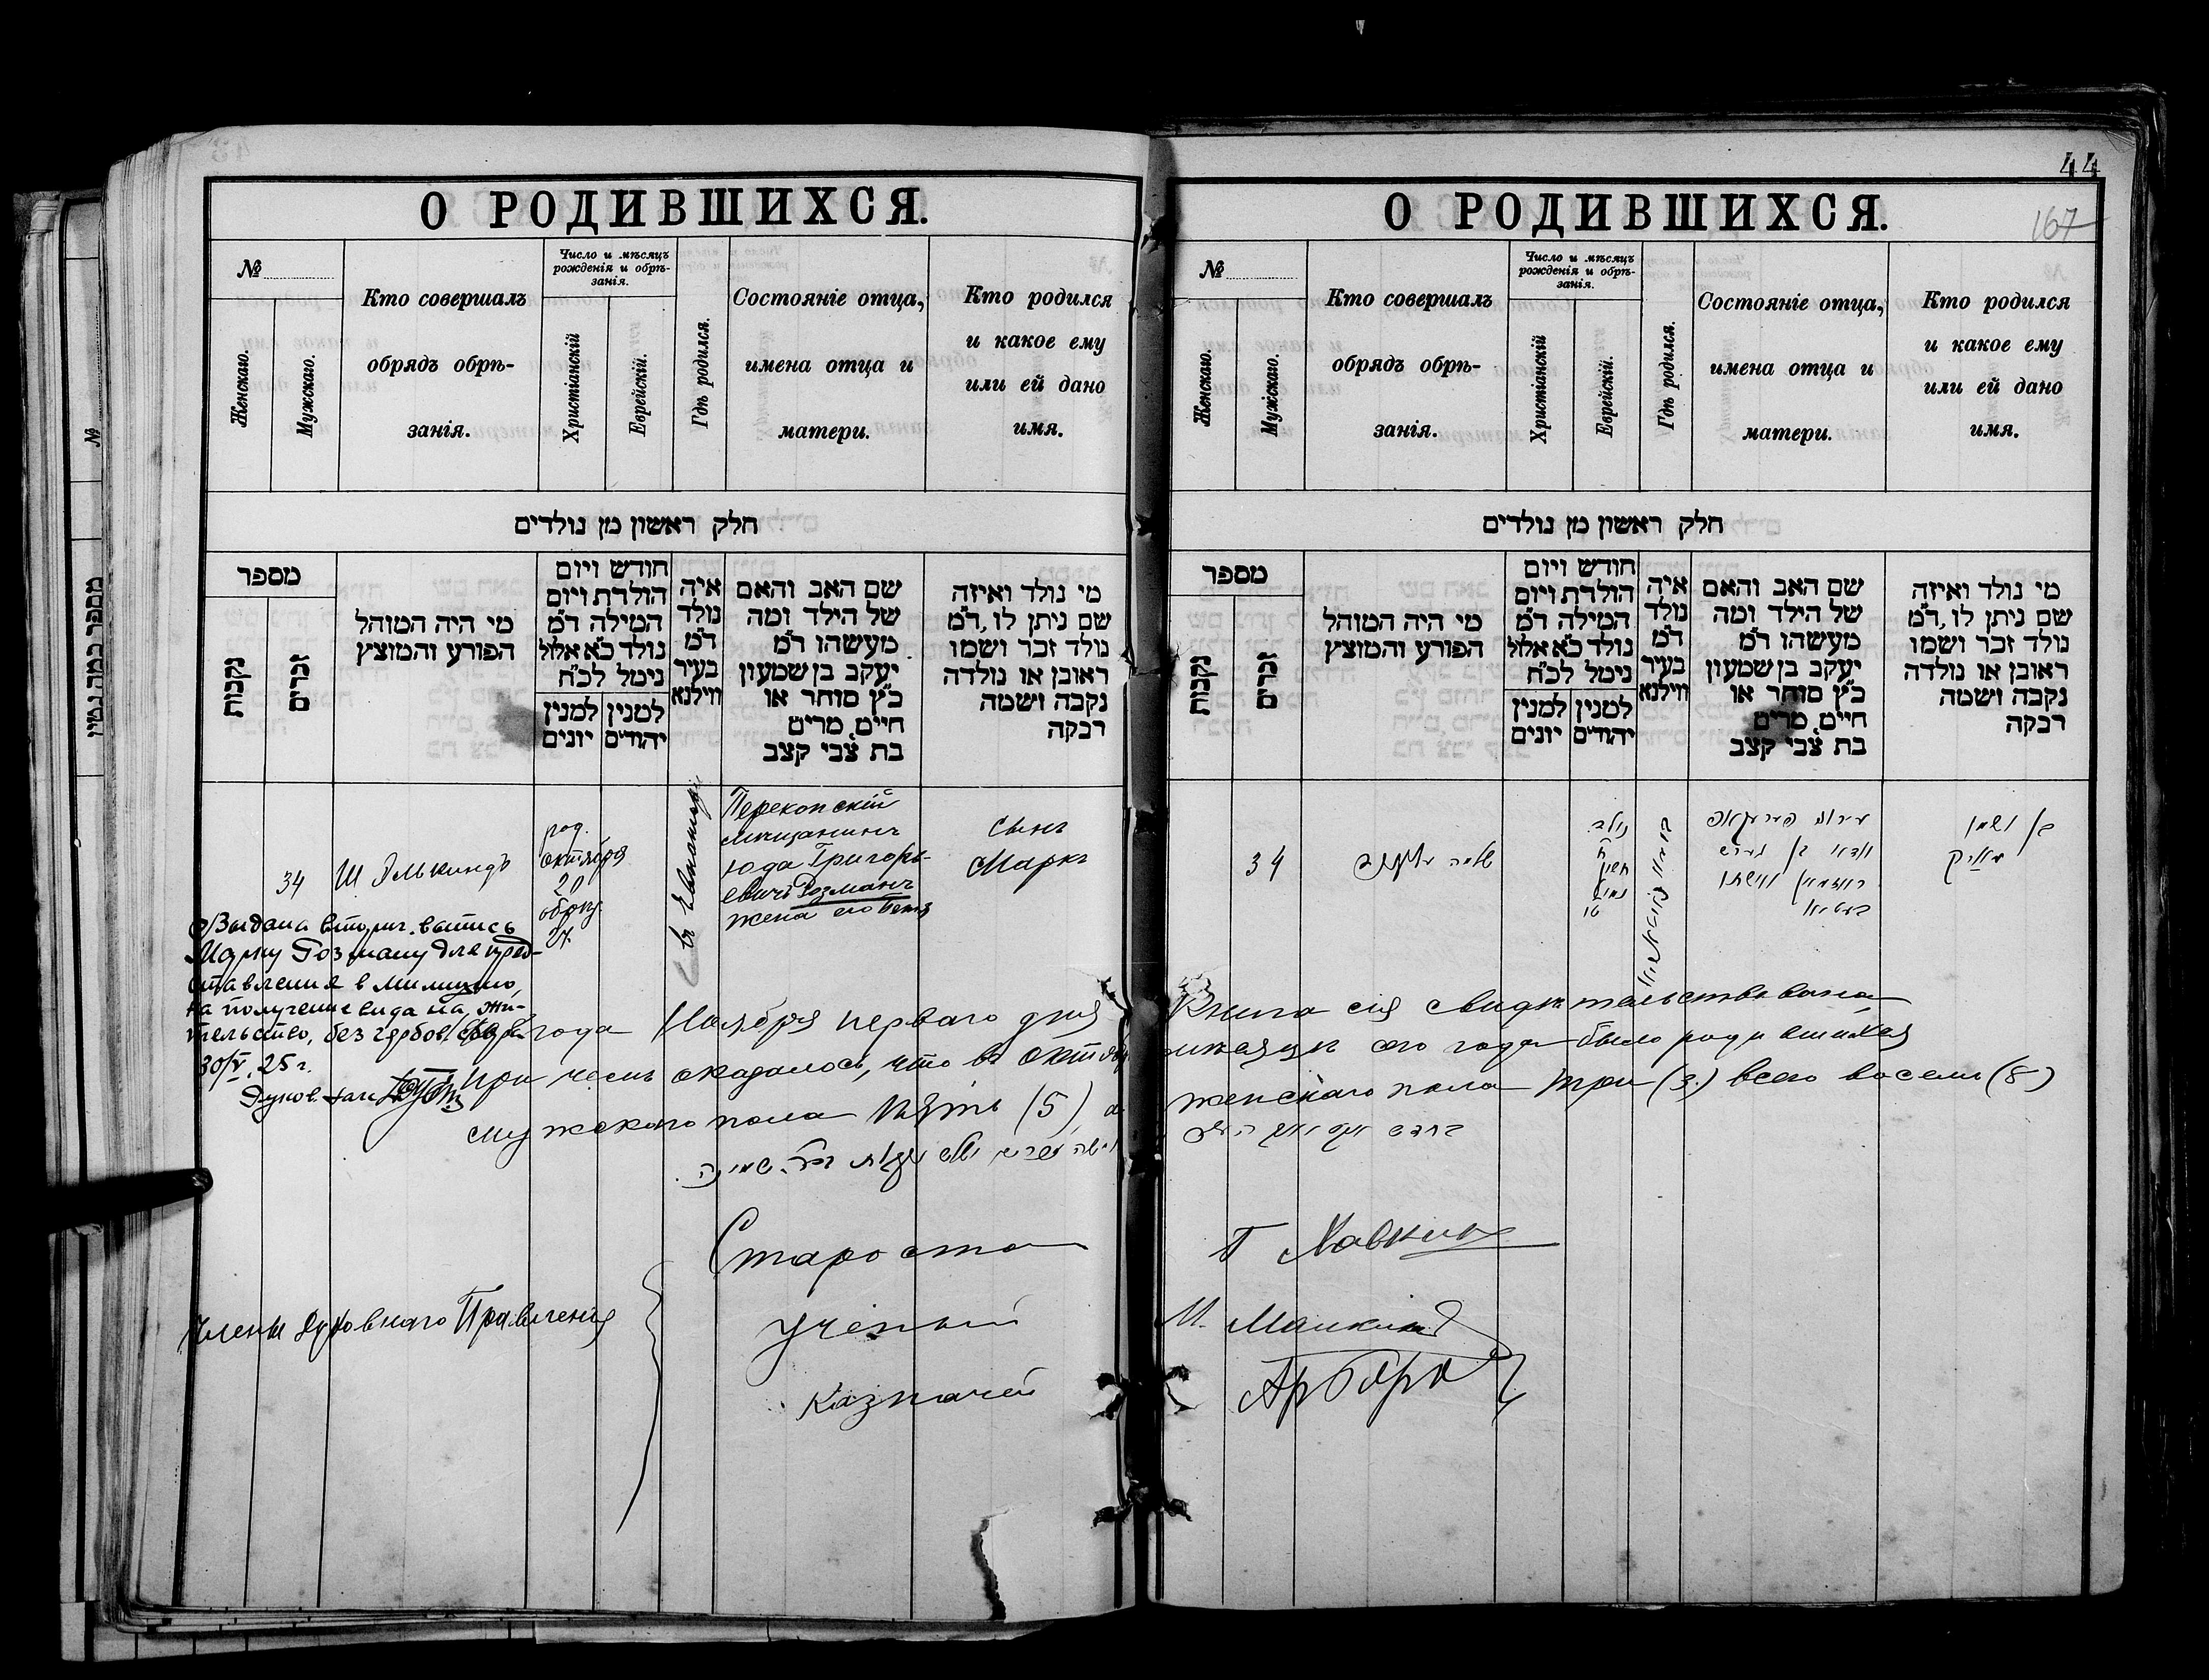 О РОДИВШИХСЯ.
№
Женскаго.
Мужскаго.
Кто совершалъ
обрядъ обрѣ-
занія.
Число и мѣсяцъ
рожденія и обрѣ-
занія.
Христіанскій
Еврейскій.
Гдѣ родился.
Состояніе отца,
имена отца и
матери.
Кто родился
и какое ему
или ей дано
имя.
חלק ראשון מן נולדים
מספר
נקבות
זכרים
מי היה המוהל
הפורע והמוצץ
חודש ויום
הולדת ויום
המילה ד״מ
נולד כ״א אלול
נימל לכ״ח
למנין
יונים
למנין
יהודים
איה
נולד
ד״מ
בעיר
ווילנא
שם האב והאם
של הילד ומה
מעשהו ד״מ
יעקב בן שמעון
כ״ץ סוחר או
חיים, מרים
בת צבי קצב
מי נולד ואיזה
שם ניתן לו, ד״מ
נולד זכר ושמו
ראובן או נולדה
נקבה ושמה
רבקה
34
Ш Элькиндъ
род.
октября
20
обрѣз.
27
Перекопскій
мѣщанинъ
Юда Григорь-
евичъ Розманъ
жена его
сынъ
Маркъ
Выдана вторич. выпись
Марку Розману для пред-
ставления в милицию,
на получение вида на жи-
тельство, без гербов. сбора
30/V, 25 г.
года Ноября перваго дня
При чемъ оказалось, что въ Октябр
мужского пола пять (5) а
Староста
Члены Духовнаго Правленія
Ученый
Казначей
44
167
О РОДИВШИХСЯ.
№
Женскаго.
Мужскаго.
Кто совершалъ
обрядъ обрѣ-
занія.
Число и мѣсяцъ
рожденія и обрѣ-
занія.
Христіанскій
Еврейскій.
Гдѣ родился.
Состояніе отца,
имена отца и
матери.
Кто родился
и какое ему
или ей дано
имя.
חלק ראשון מן נולדים
מספר
נקבות
זכרים
מי היה המוהל
הפורע והמוצץ
חודש ויום
הולדת ויום
המילה ד״מ
נולד כ״א אלול
נימל לכ״ח
למנין
יונים
למנין
יהודים
איה
נולד
ד״מ
בעיר
ווילנא
שם האב והאם
של הילד ומה
מעשהו ד״מ
יעקב בן שמעון
כ״ץ סוחר או
חיים, מרים
בת צבי קצב
מי נולד ואיזה
שם ניתן לו, ד״מ
נולד זכר ושמו
ראובן או נולדה
נקבה ושמה
רבקה
34
נולד
ח
חשון
נמול
טו
בן ושמו
מאריק
Книга сія свидѣтельствована
мѣсяцѣ сего года было родившихся
женскаго пола три (3) всего восемь (8)